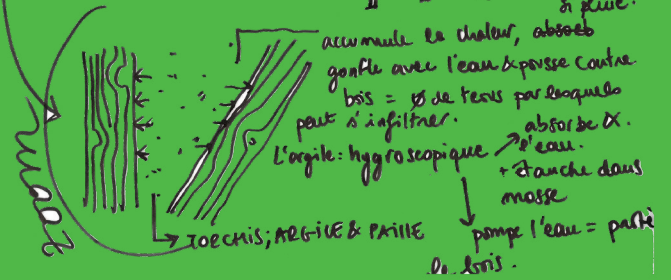 si pluie.
accumule la chaleur, absorb
gonfle avec l'eau & pousse contre
bois = ∅ de trous par lesquels
peut s'infiltrer.
L'argile: hygroscopique
absorbe
l'eau.
+ Étanche dans
masse
pompe l'eau =
le bois.
TORCHIS; ARGILE & PAILLE
zoom